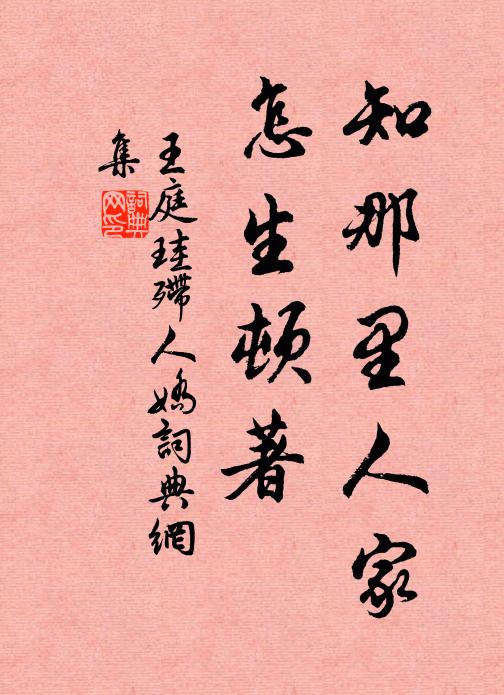 知那里人家
怎生顿著
王庭珪殢人娇詞典網
集
詞典網印